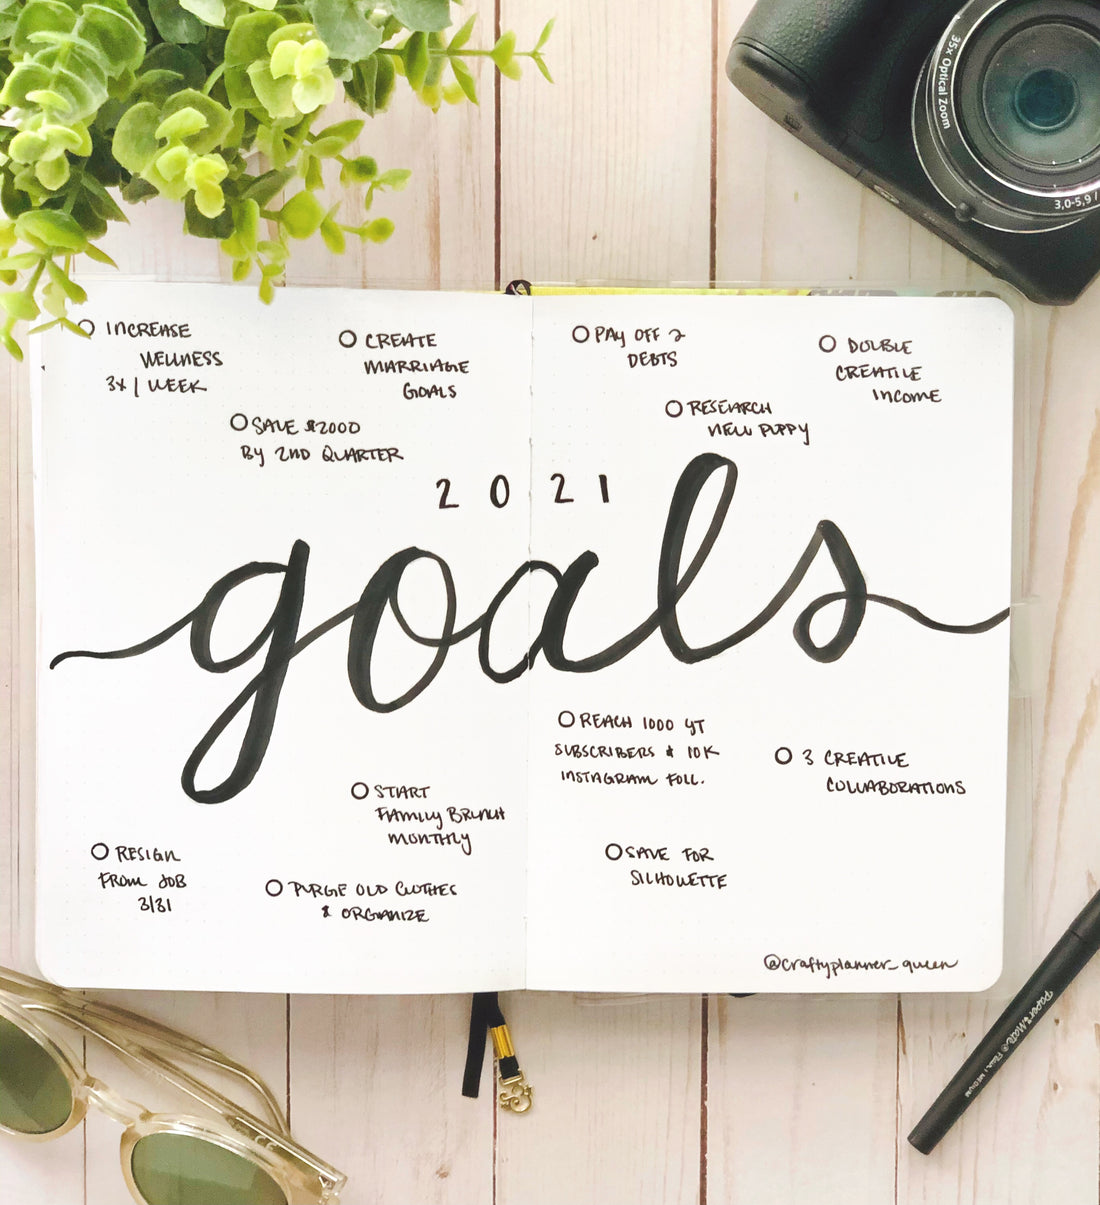 35x Optical Zoom
3,0-5,9 /
INCREASE
WELLNESS
3X / WEEK
CREATE
MARRIAGE
GOALS
SAVE $2000
By 2ND QUARTER
PAY OFF 2
DEBTS
DOUBLE
CREATIVE
INCOME
RESEARCH
NEW PUPPY
2021
goals
REACH 1000 YT
SUBSCRIBERS & 10K
INSTAGRAM FOLL.
3 CREATIVE
COLLABORATIONS
START
FAMILY BRUNCH
MONTHLY
RESIGN
FROM JOB
3/31
PURGE OLD CLOTHES
& ORGANIZE
SAVE FOR
SILHOUETTE
@craftyplanner_queen
Paper:Mate® Flair. MEDIUM